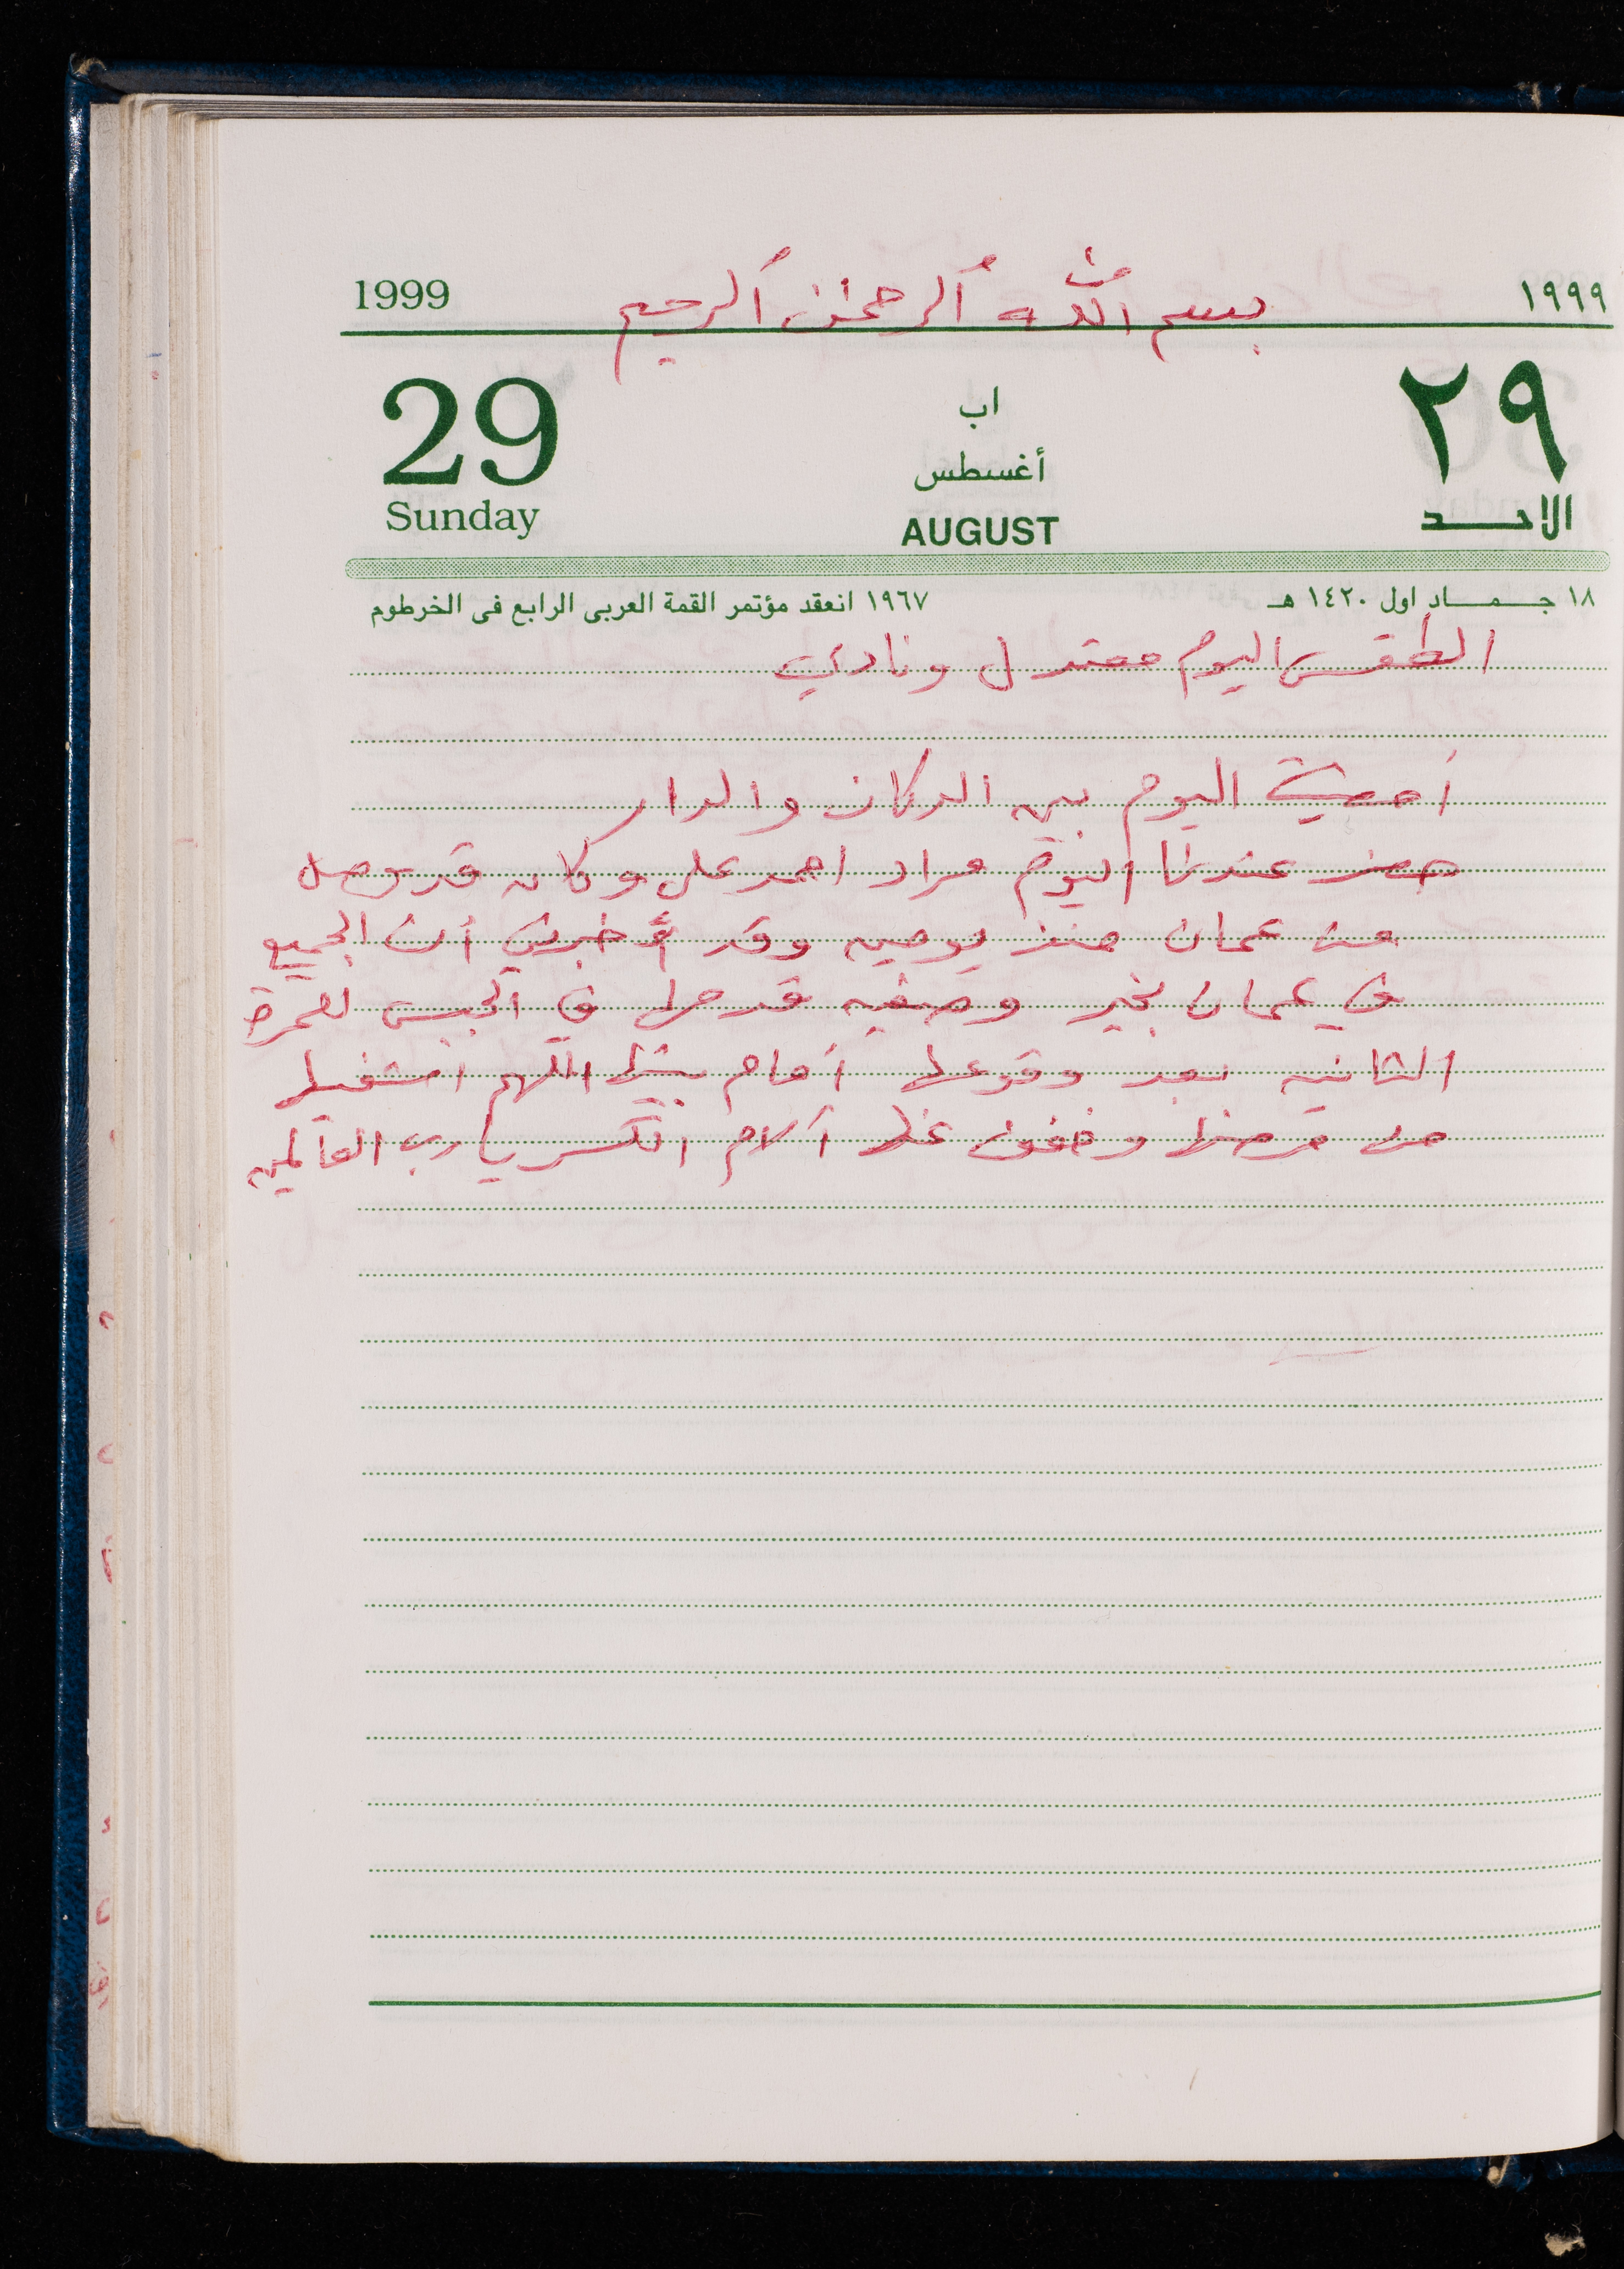 1999 بسم الله الرحمن الرحيم ١٩٩٩
29 اب ٢٩
أغسطس
Sunday AUGUST الاحد
١٨ جمـاد اول ١٤٢٠ هـ ١٩٦٧ انعقد مؤتمر القمة العربى الرابع فى الخرطوم
الطقس اليوم معتدل ونادي
أمضيت اليوم بين الدكان والدار
حضر عندنا اليوم مراد احمد علي وكان قد وصل
من عمان منذ يومين وقد أخبرني أن الجميع
في عمان بخير وصفيه قدمها في الجبس للمرة
الثانيه بعد وقوعها أمام بيتها اللهم اشفيها
من مرضها وخفف عنها آلام الكسر يا رب العالمين